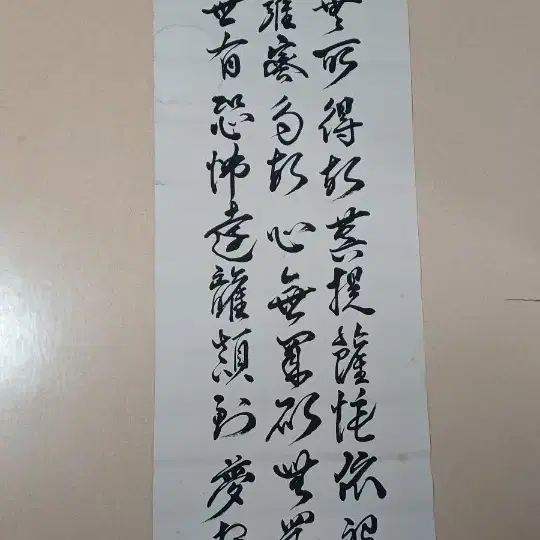 無所得故菩提薩埵依般
羅蜜多故心無罣礙無罣
無有恐怖遠離顛倒夢想